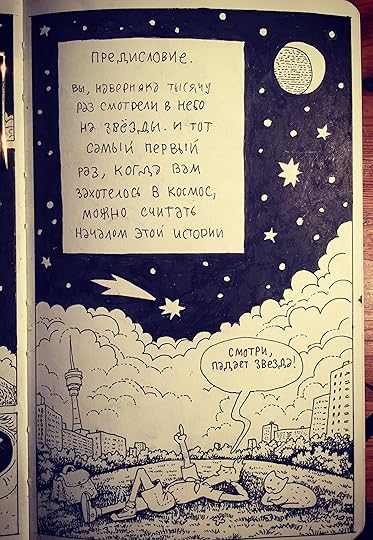 ПРЕДИСЛОВИЕ.
ВЫ, НАВЕРНЯКА ТЫСЯЧУ
РАЗ СМОТРЕЛИ В НЕБО
НА ЗВЁЗДЫ. И ТОТ
САМЫЙ ПЕРВЫЙ
РАЗ, КОГДА ВАМ
ЗАХОТЕЛОСЬ В КОСМОС,
МОЖНО СЧИТАТЬ
НАЧАЛОМ ЭТОЙ ИСТОРИИ
СМОТРИ,
ПАДАЕТ ЗВЕЗДА!